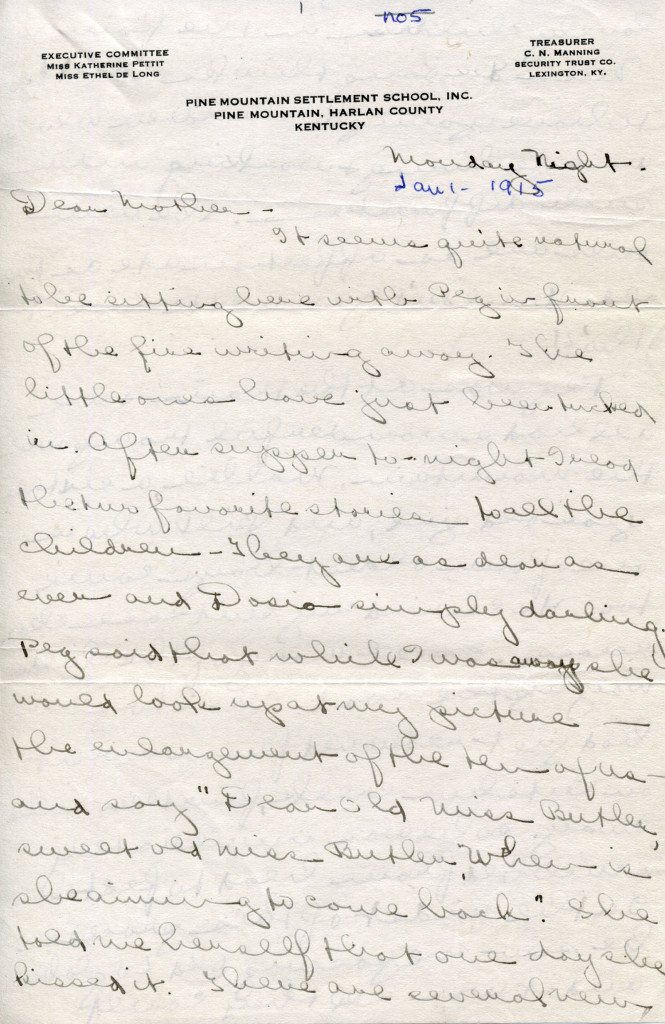 no5
EXECUTIVE COMMITTEE
MISS KATHERINE PETTIT
MISS ETHEL DE LONG
TREASURER
C. N. MANNING
SECURITY TRUST CO.
LEXINGTON, KY.
PINE MOUNTAIN SETTLEMENT SCHOOL, INC.
PINE MOUNTAIN, HARLAN COUNTY
KENTUCKY
Monday Night.
Jan 1 - 1915
Dear Mother -
It seems quite natural
to be sitting here with Peg in front
of the fire writing away. The
little ones have just been tucked
in. After supper to-night I read
the two favorite stories to all the
children - They are as dear as
ever and Dosia simply darling.
Peg said that while I was away she
would look up at my picture -
the enlargement of the ten of us -
and say "Dear old Miss Butler,
sweet old Miss Butler, When is
she aiming to come back". She
told me herself that one day she
kissed it. There are several new